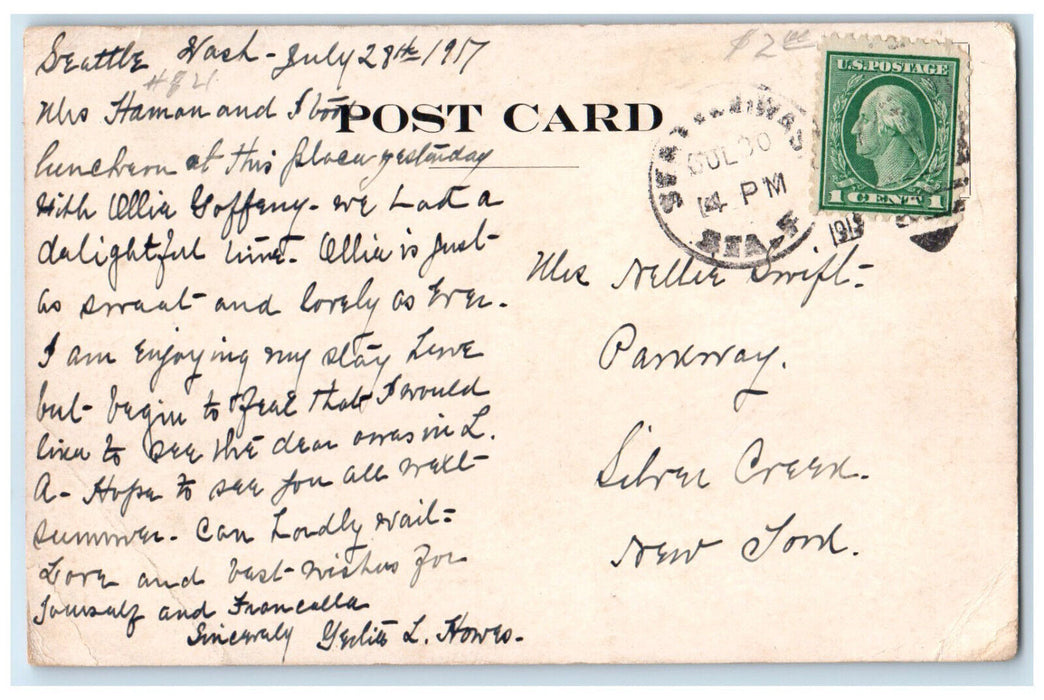 Seattle Wash - July 28th 1917
#84
$2.00
Mrs Hamon and I took
POST CARD
luncheon at this place yesterday
with Ollie Goffeny - we had a
delightful time. Ollie is just
as sweet and lovely as ever.
I am enjoying my stay here
but begin to feel that I would
like to see the dear ones in L.
A - Hope to see you all next
summer. Can hardly wait -
Love and best wishes for
Yourself and
Sincerely L. Howes.
U.S. POSTAGE
1 CENT 1
SEATTLE WASH
JUL 30
4 PM
STA
Mrs Nellie Swift -
Parkway.
Silver Creek.
New York.